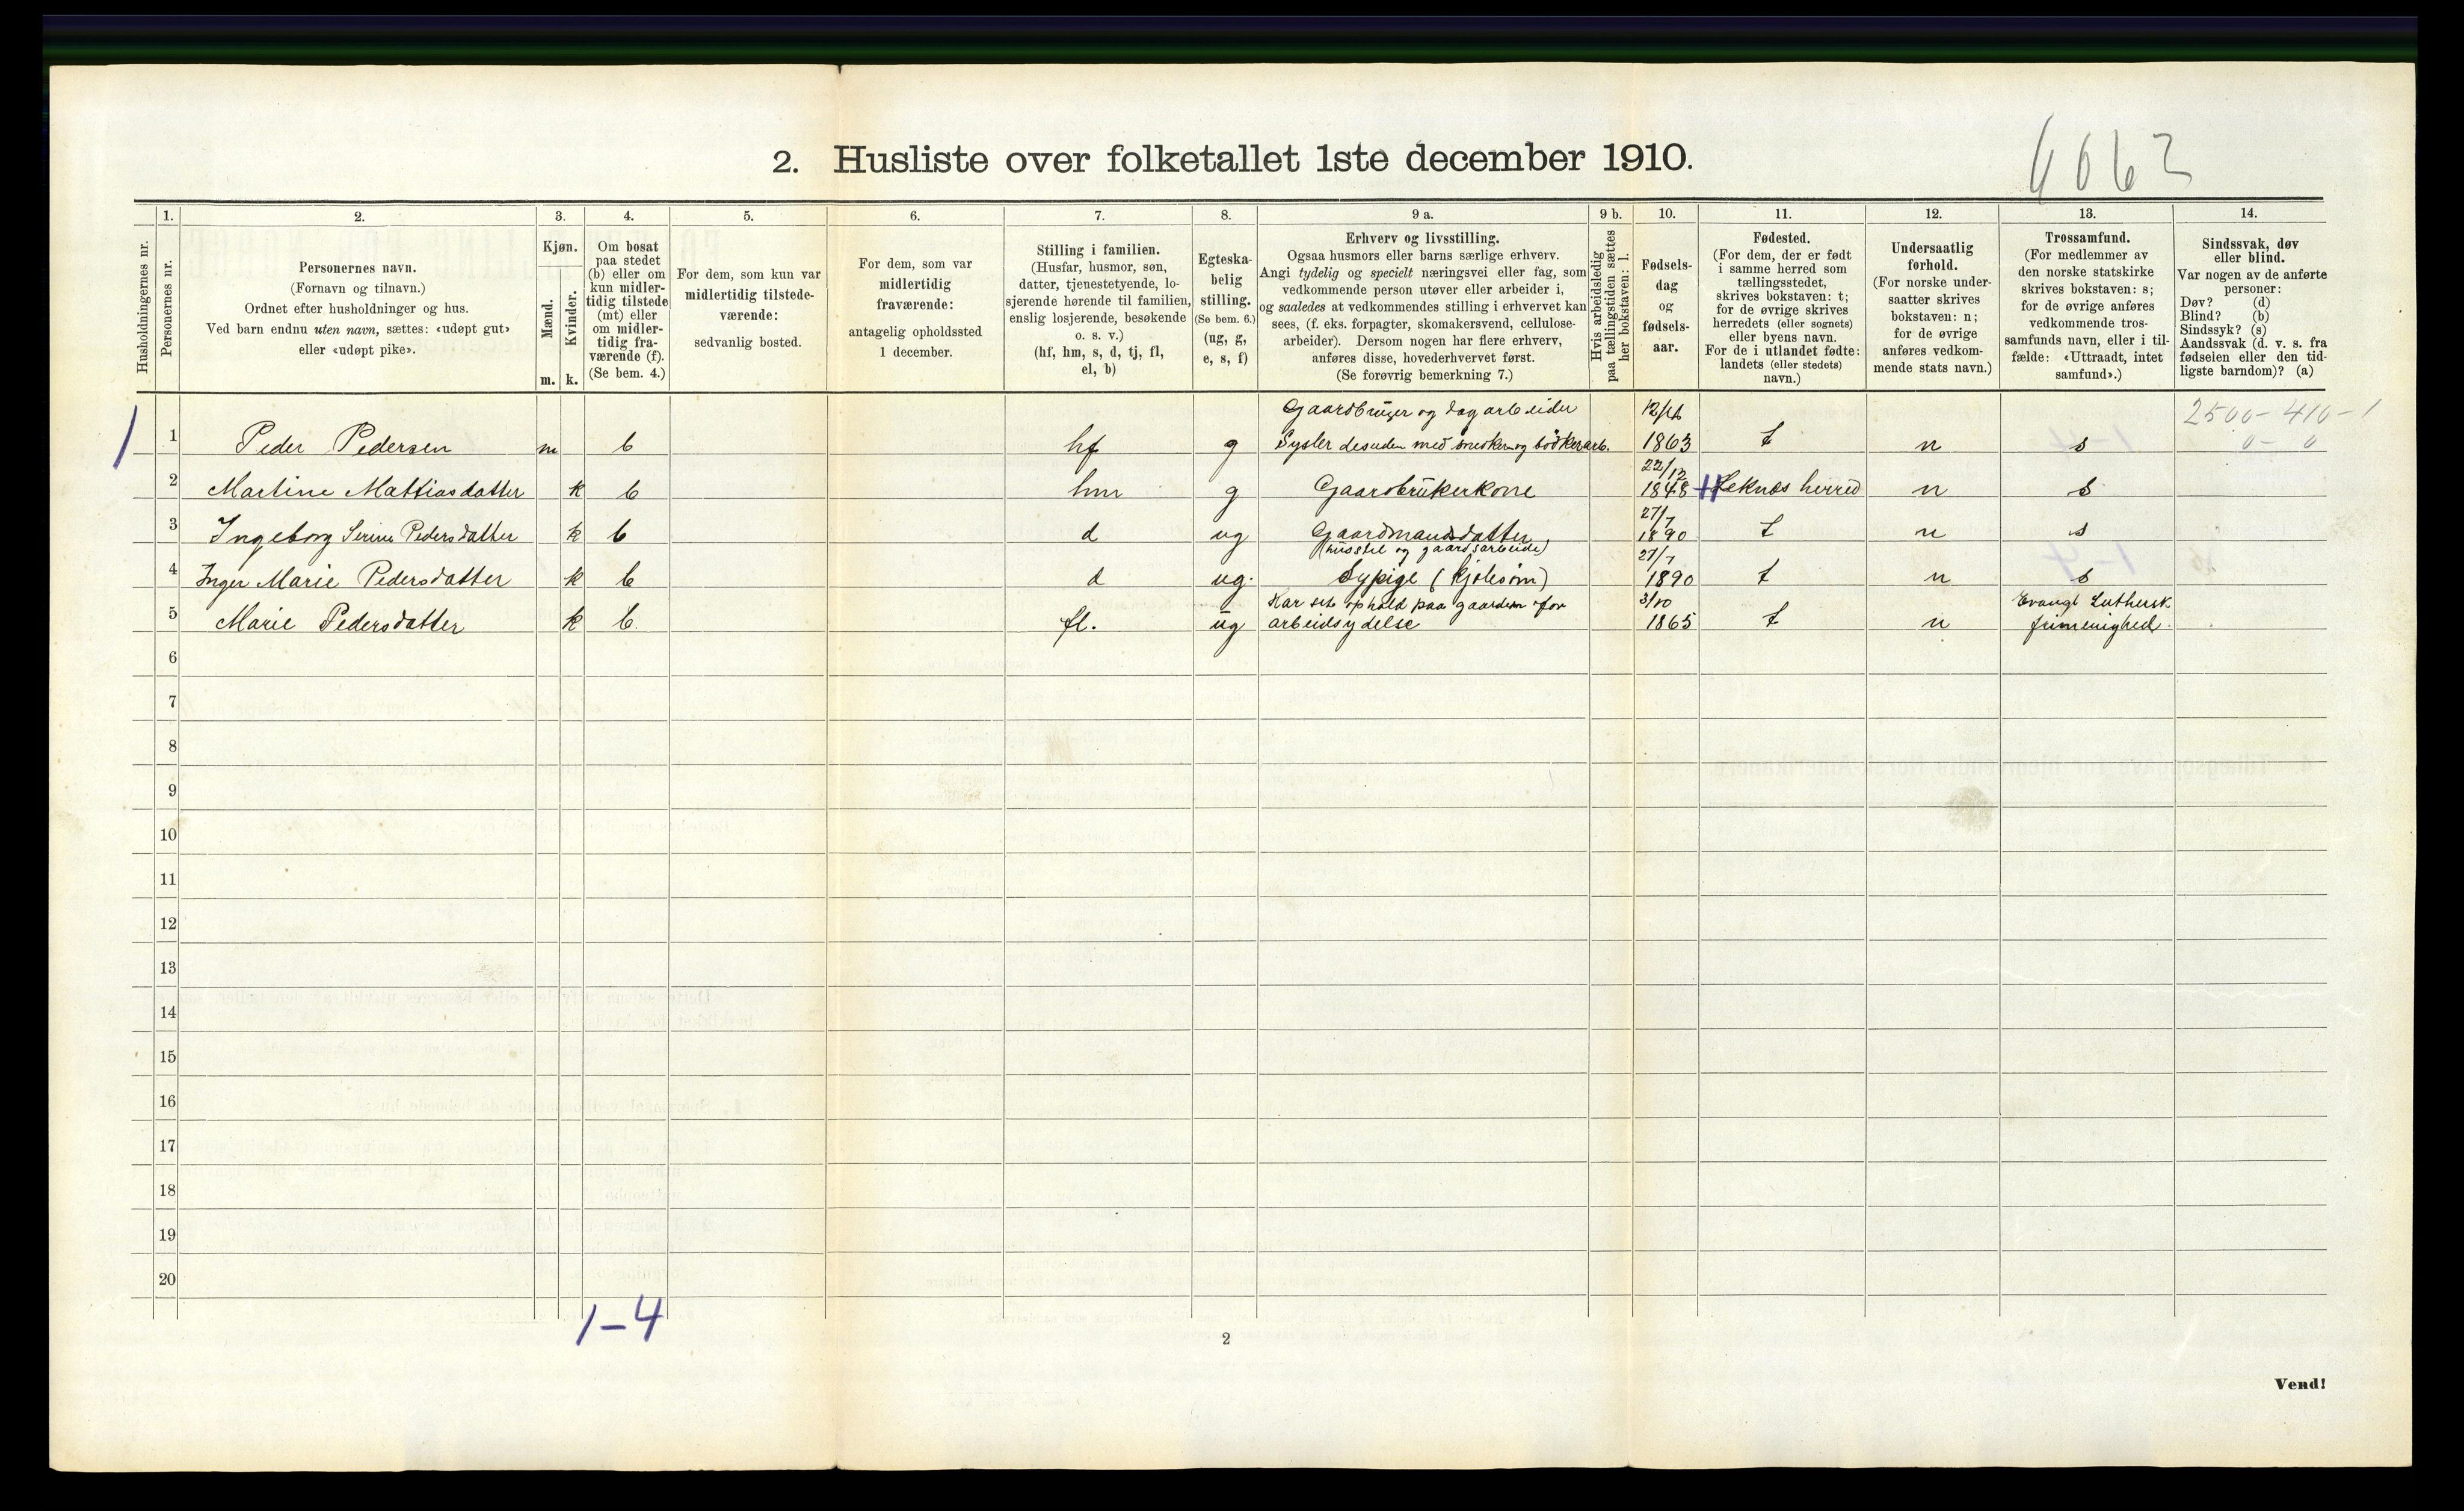 2. Husliste over folketallet 1ste december 1910.
6062
Husholdningernes nr.
1.
Personernes nr.
2.
Personernes navn.
(Fornavn og tilnavn.)
Ordnet efter husholdninger og hus.
Ved barn endnu uten navn, sættes: «udøpt gut»
eller «udøpt pike».
3.
Kjøn.
Mænd.
Kvinder.
m. k.
4.
Om bosat
paa stedet
(b) eller om
kun midler-
tidig tilstede
(mt) eller
om midler-
tidig fra-
værende (f).
(Se bem. 4.)
5.
For dem, som kun var
midlertidig tilstede-
værende:
sedvanlig bosted.
6.
For dem, som var
midlertidig
fraværende:
antagelig opholdssted
1 december.
7.
Stilling i familien.
(Husfar, husmor, søn,
datter, tjenestetyende, lo-
sjerende hørende til familien,
enslig losjerende, besøkende
o. s. v.)
(hf, hm, s, d, tj, fl,
el, b)
8.
Egteska-
belig
stilling.
(Se bem. 6.)
(ug, g,
e, s, f)
9 a.
Erhverv og livsstilling.
Ogsaa husmors eller barns særlige erhverv.
Angi tydelig og specielt næringsvei eller fag, som
vedkommende person utøver eller arbeider i,
og saaledes at vedkommendes stilling i erhvervet kan
sees, (f. eks. forpagter, skomakersvend, cellulose-
arbeider). Dersom nogen har flere erhverv,
anføres disse, hovederhvervet først.
(Se forøvrig bemerkning 7.)
9 b.
Hvis arbeidsledig
paa tællingstiden sættes
her bokstaven: l.
10.
Fødsels-
dag
og
fødsels-
aar.
11.
Fødested.
(For dem, der er født
i samme herred som
tællingsstedet,
skrives bokstaven: t;
for de øvrige skrives
herredets (eller sognets)
eller byens navn.
For de i utlandet fødte:
landets (eller stedets)
navn.)
12.
Undersaatlig
forhold.
(For norske under-
saatter skrives
bokstaven: n;
for de øvrige
anføres vedkom-
mende stats navn.)
13.
Trossamfund.
(For medlemmer av
den norske statskirke
skrives bokstaven: s;
for de øvrige anføres
vedkommende tros-
samfunds navn, eller i til-
fælde: «Uttraadt, intet
samfund».)
14.
Sindssvak, døv
eller blind.
Var nogen av de anførte
personer:
Døv? (d)
Blind? (b)
Sindssyk? (s)
Aandssvak (d. v. s. fra
fødselen eller den tid-
ligste barndom)? (a)
Gaardbruger og dagarbeider 2500 - 410 - 1
1 1 Peder Pedersen m b hf g Sysler desuden med snedker og bødkerarb. 1863 t n s 0 - 0
22/12
2 Martine Mattiasdatter k b hm g Gaardbrukerkone 1848 Veknes herred n s
27/7
3 Ingeborg Serine Pedersdatter k b d ug Gaardmandsdatter 1890 t n s
(husstel og gaardsarbeide) 27/7
4 Inger Marie Pedersdatter k b d ug. Sypige (kjolesøm) 1890 t n s
Har sit ophold paa gaarden for 3/10 Evangl Luthersk
5 Marie Pedersdatter k b. fl. ug arbeidsydelse 1865 t n frimenighed.
6
7
8
9
10
11
12
13
14
15
16
17
18
19
20
1-4
2
Vend!